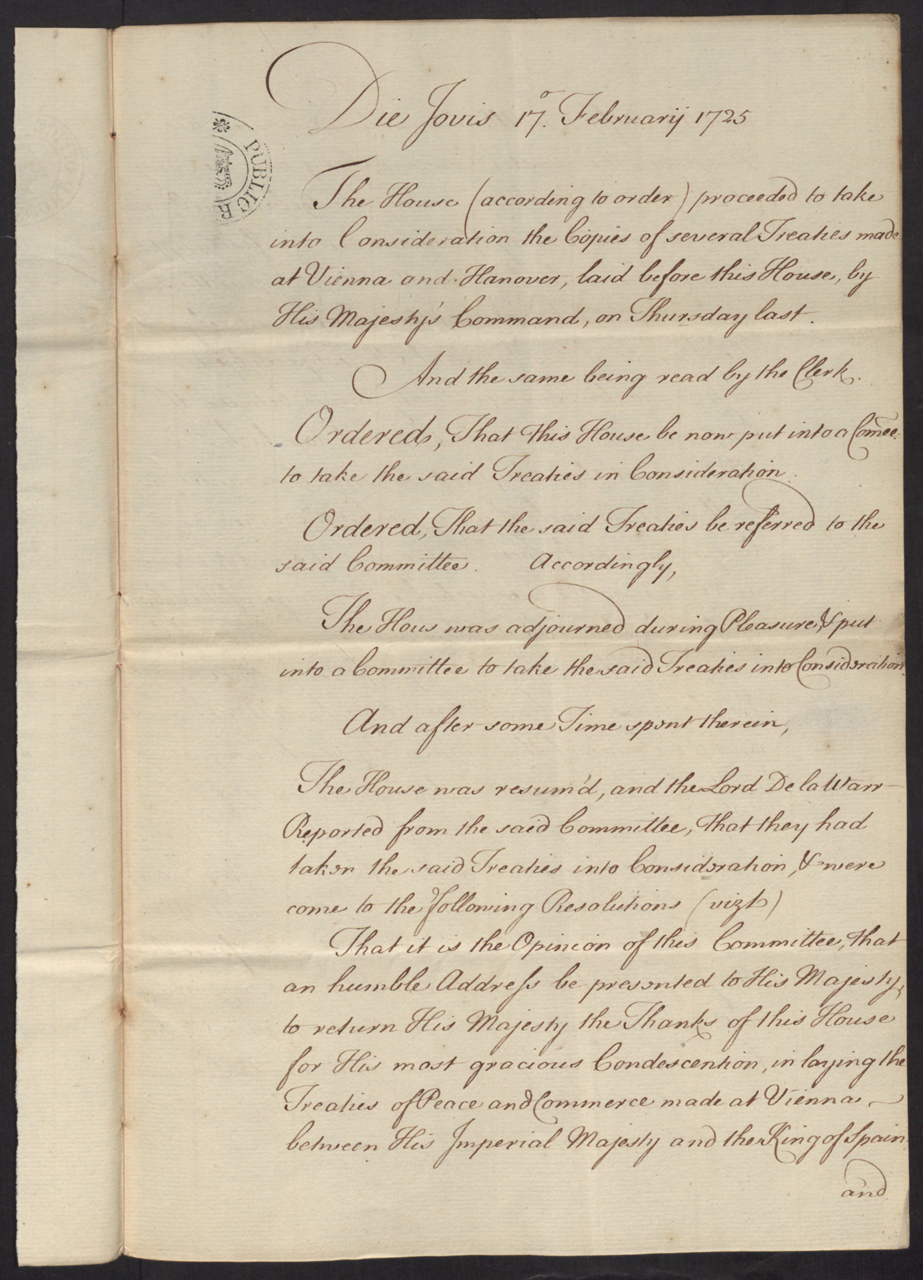 Die Jovis 17.º Februarij 1725
PUBLIC R
The House (according to order) proceeded to take
into Consideration the Copies of several Treaties made
at Vienna and Hanover, laid before this House, by
His Majesty's Command, on Thursday last.
And the same being read by the Clerk.
Ordered, That this House be now put into a Comee.
to take the said Treaties in Consideration.
Ordered, That the said Treaties be referred to the
said Committee. Accordingly,
The Hous was adjourned during Pleasure, & put
into a Committee to take the said Treaties into Consideration.
And after some Time spent therein,
The House was resum'd, and the Lord De la Warr
Reported from the said Committee, that they had
taken the said Treaties into Consideration, & were
come to the following Resolutions (vizt)
That it is the Opinion of this Committee, that
an humble Address be presented to His Majesty,
to return His Majesty the Thanks of this House
for His most gracious Condescention, in laying the
Treaties of Peace and Commerce made at Vienna
between His Imperial Majesty and the King of Spain
and